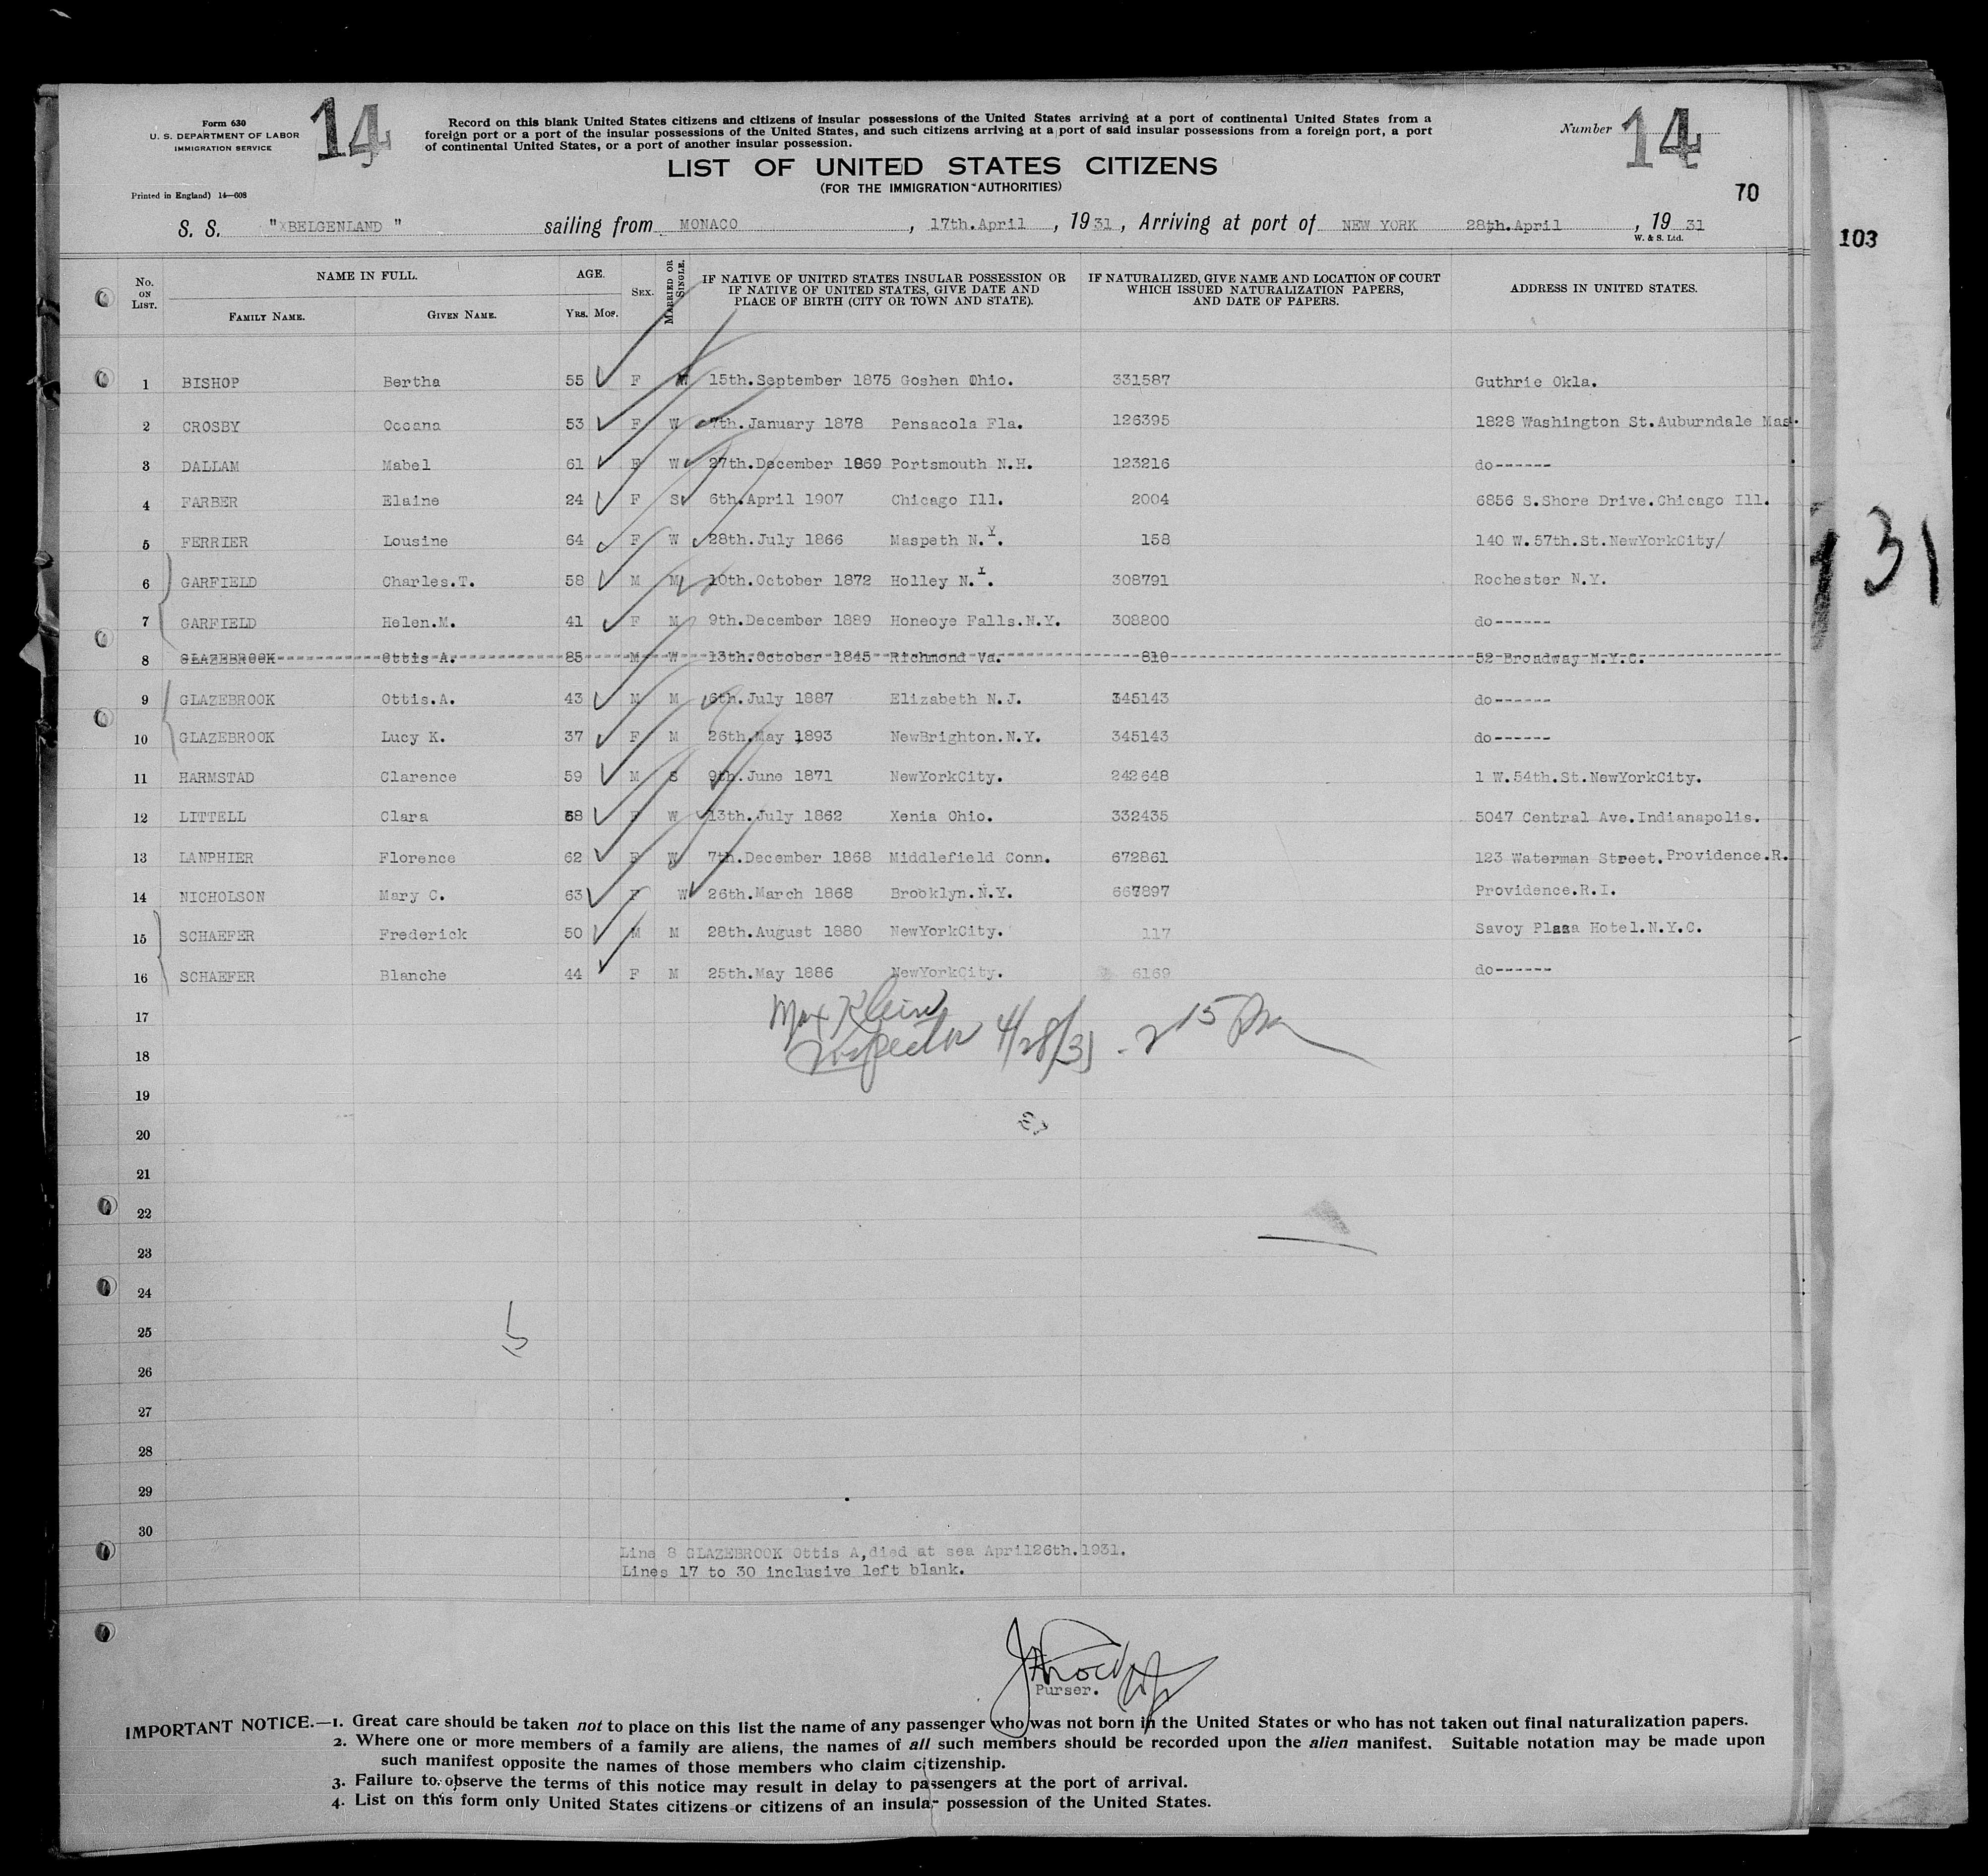 Form 630
U. S. DEPARTMENT OF LABOR
IMMIGRATION SERVICE
14
Record on this blank United States citizens and citizens of insular possessions of the United States arriving at a port of continental United States from a
foreign port or a port of the insular possessions of the United States, and such citizens arriving at a port of said insular possessions from a foreign port, a port
of continental United States, or a port of another insular possession.
Number 14
LIST OF UNITED STATES CITIZENS
(FOR THE IMMIGRATION AUTHORITIES)
Printed in England) 14—608
70
S. S. "XBELGENLAND " sailing from MONACO , 17th.April , 19 31 , Arriving at port of NEW YORK 28th.April , 19 31
W. & S. Ltd.
103
No. ON LIST. NAME IN FULL. FAMILY NAME. GIVEN NAME. AGE. YRS. MOS. SEX. MARRIED OR SINGLE. IF NATIVE OF UNITED STATES INSULAR POSSESSION OR IF NATIVE OF UNITED STATES, GIVE DATE AND PLACE OF BIRTH (CITY OR TOWN AND STATE). IF NATURALIZED, GIVE NAME AND LOCATION OF COURT WHICH ISSUED NATURALIZATION PAPERS, AND DATE OF PAPERS. ADDRESS IN UNITED STATES.
1 BISHOP Bertha 55 F W 15th.September 1875 Goshen Ohio. 331587 Guthrie Okla.
2 CROSBY Oceana 53 F W 7th.January 1878 Pensacola Fla. 126395 1828 Washington St.Auburndale Mas.
3 DALLAM Mabel 61 F W 27th.December 1869 Portsmouth N.H. 123216 do------
4 FARBER Elaine 24 F S 6th.April 1907 Chicago Ill. 2004 6856 S.Shore Drive.Chicago Ill.
5 FERRIER Lousine 64 F W 28th.July 1866 Maspeth N.Y. 158 140 W.57th.St.NewYorkCity/
6 GARFIELD Charles.T. 58 M M 10th.October 1872 Holley N.Y. 308791 Rochester N.Y.
7 GARFIELD Helen.M. 41 F M 9th.December 1889 Honeoye Falls.N.Y. 308800 do------
8 GLAZEBROOK Ottis A. 85 M W 13th.October 1845 Richmond Va. 810 52 Broadway N.Y.C.
9 GLAZEBROOK Ottis.A. 43 M M 6th.July 1887 Elizabeth N.J. 345143 do------
10 GLAZEBROOK Lucy K. 37 F M 26th.May 1893 NewBrighton.N.Y. 345143 do------
11 HARMSTAD Clarence 59 M S 9th.June 1871 NewYorkCity. 242648 1 W.54th.St.NewYorkCity.
12 LITTELL Clara 68 F W 13th.July 1862 Xenia Ohio. 332435 5047 Central Ave.Indianapolis.
13 LANPHIER Florence 62 F W 7th.December 1868 Middlefield Conn. 672861 123 Waterman Street.Providence.R.
14 NICHOLSON Mary C. 63 F W 26th.March 1868 Brooklyn.N.Y. 667897 Providence.R.I.
15 SCHAEFER Frederick 50 M M 28th.August 1880 NewYorkCity. 117 Savoy Plaza Hotel.N.Y.C.
16 SCHAEFER Blanche 44 F M 25th.May 1886 NewYorkCity. 6169 do------
17
Max Klein
18
Inspector 4/28/31 - 2 15 PM
19
20
21
22
23
24
25
26
27
28
29
30
Line 8 GLAZEBROOK Ottis A,died at sea April26th.1931.
Lines 17 to 30 inclusive left blank.
Purser.
IMPORTANT NOTICE.—1. Great care should be taken not to place on this list the name of any passenger who was not born in the United States or who has not taken out final naturalization papers.
2. Where one or more members of a family are aliens, the names of all such members should be recorded upon the alien manifest. Suitable notation may be made upon
such manifest opposite the names of those members who claim citizenship.
3. Failure to observe the terms of this notice may result in delay to passengers at the port of arrival.
4. List on this form only United States citizens or citizens of an insular possession of the United States.